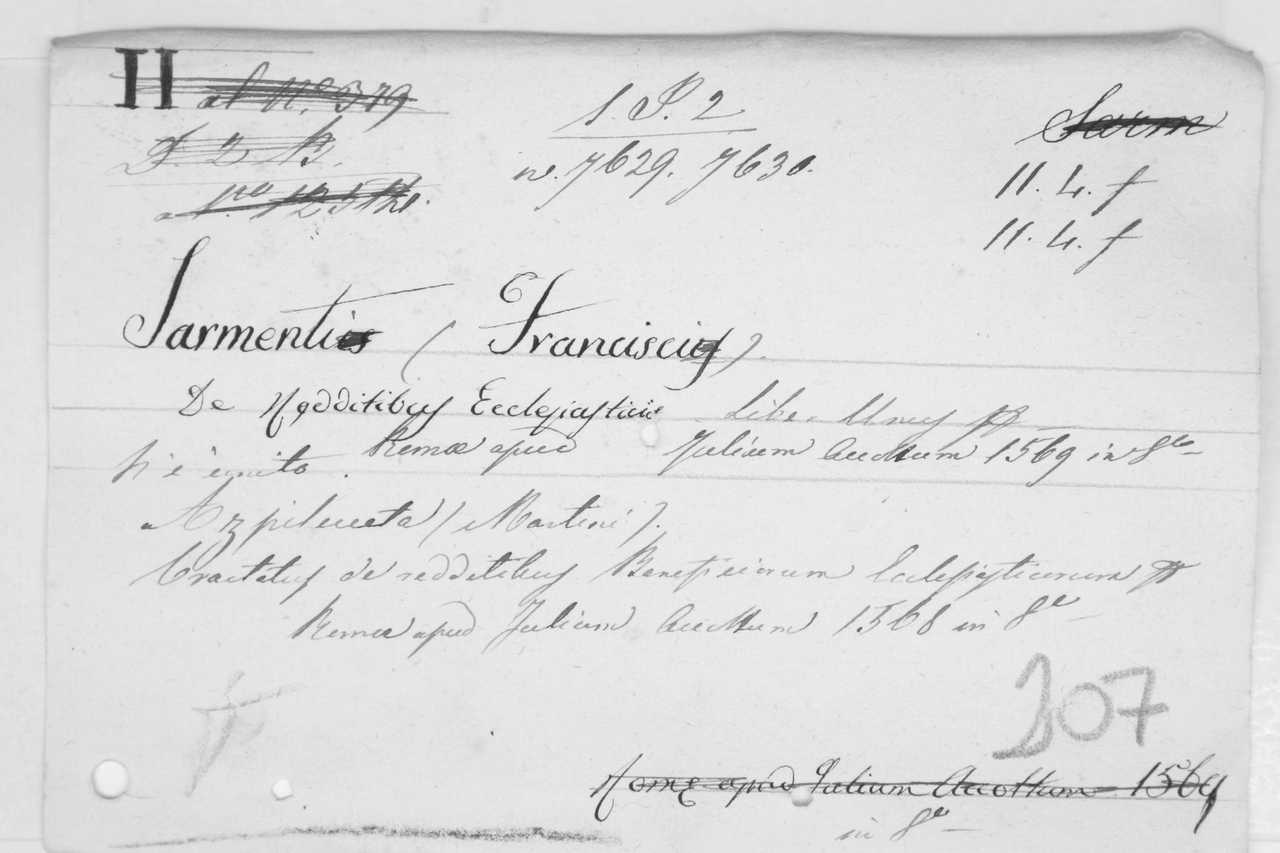 II al N.º 379
S. P. 2
Sarm
F. 2 B.
n. 7629. 7630.
11. 4. f
11. 4. f
Sarmenti (Francisci).
De Redditibus Ecclesiasticis Liber Unus
vi è unito. Romæ apud Julium Accoltum 1569 in 8º
Azpilcueta (Martini).
Tractatus de redditibus Beneficiorum Ecclesiasticorum
Romæ apud Julium Accoltum 1568 in 8º
207
Romę apud Iulium Accoltum 1569
in 8º